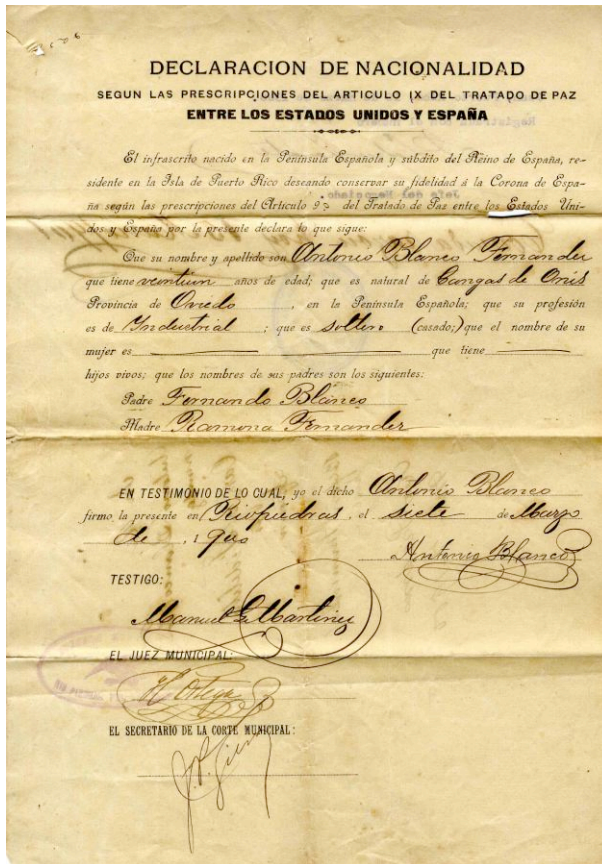 DECLARACION DE NACIONALIDAD
SEGUN LAS PRESCRIPCIONES DEL ARTICULO IX DEL TRATADO DE PAZ
ENTRE LOS ESTADOS UNIDOS Y ESPAÑA
El infrascrito nacido en la Península Española y súbdito del Reino de España, re-
sidente en la Isla de Puerto Rico deseando conservar su fidelidad á la Corona de Espa-
ña según las prescripciones del Artículo 9º del Tratado de Paz entre los Estados Uni-
dos y España por la presente declara lo que sigue:
Que su nombre y apellido son Antonio Blanco Fernandez
que tiene veintiun años de edad; que es natural de Cangas de Onis
Provincia de Oviedo, en la Península Española; que su profesión
es de Industrial; que es soltero (casado;) que el nombre de su
mujer es que tiene
hijos vivos; que los nombres de sus padres son los siguientes:
Padre Fernando Blanco
Madre Ramona Fernandez
EN TESTIMONIO DE LO CUAL, yo el dicho Antonio Blanco
firmo la presente en Riopiedras, el siete de Marzo
de 1900
Antonio Blanco
TESTIGO:
Manuel G Martinez
EL JUEZ MUNICIPAL:
Ortega
EL SECRETARIO DE LA CORTE MUNICIPAL: